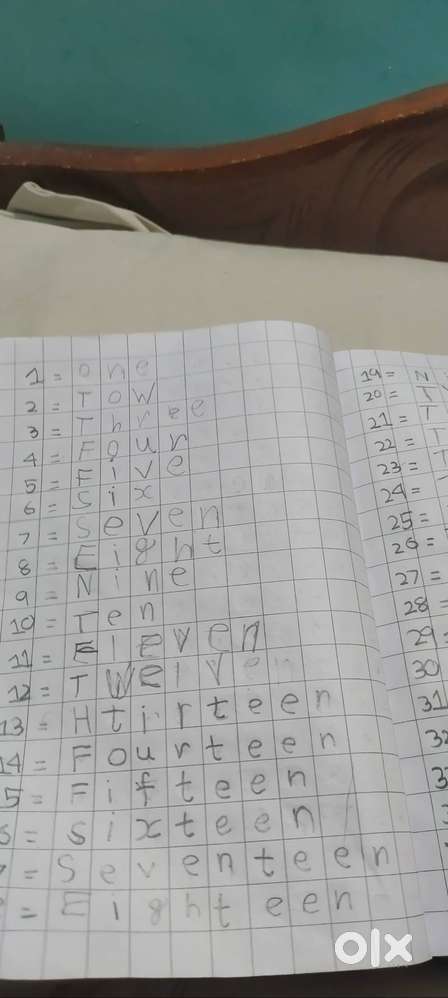 1 = one
2 = Tow
3 = Three
4 = Four
5 = Five
6 = Six
7 = Seven
8 = Eight
9 = Nine
10 = Ten
11 = Eleven
12 = Twelven
13 = Htirteen
14 = Fourteen
5 = Fifteen
6 = sixteen
= Seventeen
= Eighteen
19 = N
20 = T
21 = T
22 = T
23 = T
24 =
25 =
26 =
27 =
28 =
29
30
31
32
3
olx